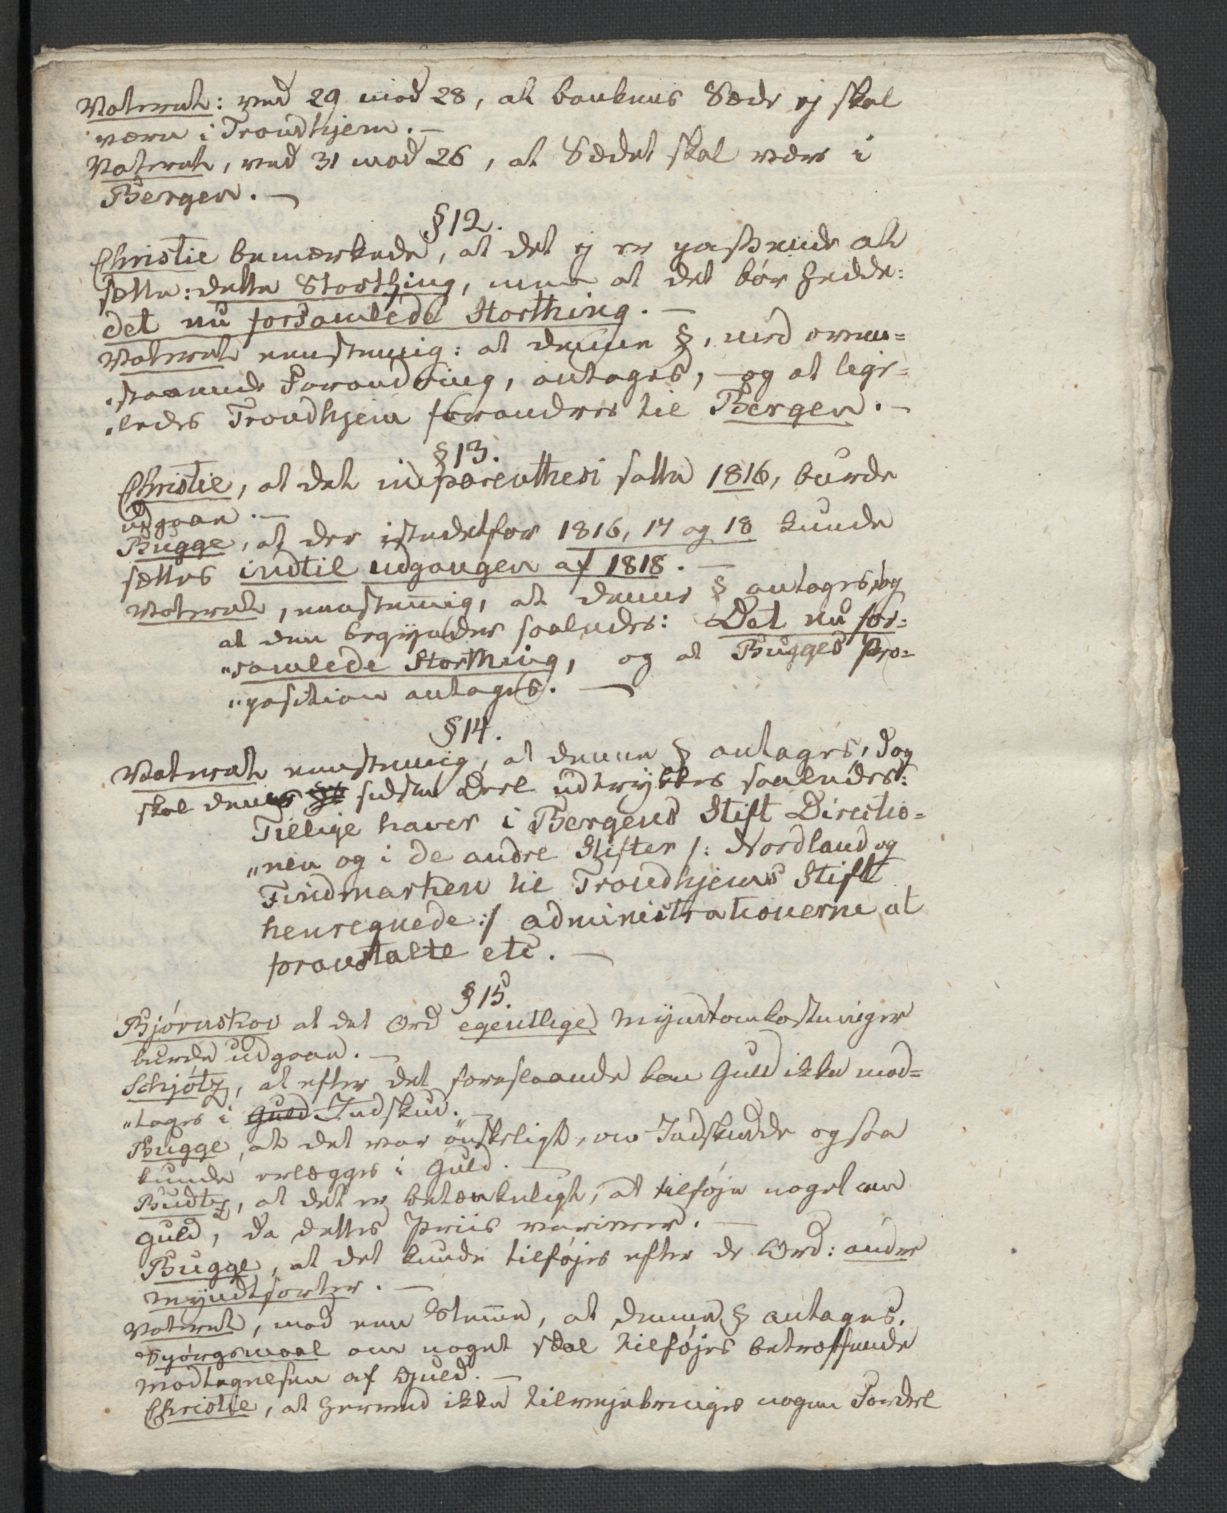 Voterat: med 29 mod 28, at bankens Sæde ej skal
være i Trondhjem. —
Voterat, med 31 mod 26, at Sædet skal være i
Bergen. —
§ 12.
Christie bemærkede, at det ej er passende at
sætte: dette Storthing, men at det bør hedde:
det nu forsamlede Storthing. —
Voterat eenstemmig: at denne §, med oven=
„staaende Forandring, antages, — og at lige=
„ledes Trondhjem forandres til Bergen. —
§ 13.
Christie, at det in parenthesi satte 1816, burde
udgaae. —
Bugge, at der istedetfor 1816, 17 og 18 kunde
sættes indtil udgangen af 1818. —
Voterat, eenstemig, at denne § antages, og
at den begynder saaledes: Det nu for=
„samlede Storthing, og at Bugges Pro=
„position antages. —
§ 14.
Voterat eenstemmig, at denne § antages, dog
skal dens sidste Deel udtrykkes saaledes:
Tillige haver i Bergens Stift Directio=
„nen og i de andre Stifter /: Nordland og
Findmarken til Trondhjems Stift
henregnede :/ administrationerne at
foranstalte etc. —
§ 15.
Bjørnskov at det Ord egentlige Myntomkostninger
burde udgaae. —
Schjøtz, at efter det foreslaaende kan Guld ikke mod=
„tages i Guld Indskud. —
Bugge, at det var ønskeligt, om Indskudde ogsaa
kunde erlægges i Guld. —
Budtz, at det er betænkeligt, at tilføje noget om
Guld, da dettes Priis varierer. —
Bugge, at det kunde tilføjes efter de Ord: andre
Myndtsorter. —
Voterat, mod een Stemme, at denne § antages.
Spørgsmaal om noget skal tilføjes betreffende
Modtagelsen af Guld. —
Christie, at herved ikke tilvejebringes nogen Fordeel